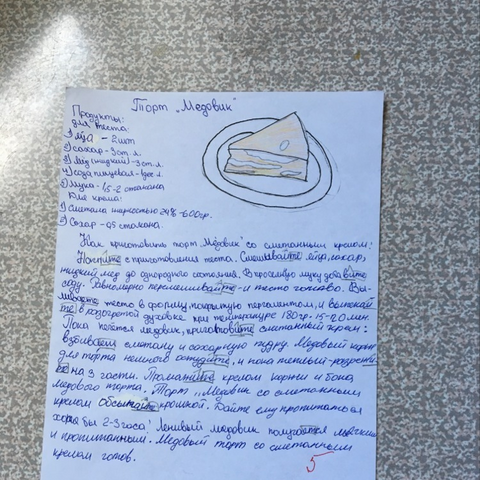 Торт „Медовик"
Продукты:
для теста:
1) яйца - 2 шт
2) сахар - 3 ст. л.
3) Мёд (жидкий) - 3 ст. л.
4) сода пищевая - 1 дес л.
5) Мука - 1,5-2 стакана
Для крема:
1) Сметана жирностью 24% - 600 гр.
2) Сахар - 0,5 стакана.
Как приготовить торт „Медовик" со сметанным кремом:
Начните с приготовления теста. Смешивайте яйца, сахар,
жидкий мёд до однородного состояния. В просеяную муку добавьте
соду. Равномерно перемешивайте - и тесто готово. Вы-
тесто в форму, покрытую пергаментом, и выпекай
те в разогретой духовке при температуре 180 гр. 15-20 мин.
Пока печётся медовик, приготовьте сметанный крем:
сметану и сахарную пудру. Медовый корж
для торта немного остудите, и пока теплый-
на 3 части. кремом коржи и бока
медового торта. Торт „Медовик со сметанным
кремом обсыпайте крошкой. Дайте ему пропитаться
хотя бы 2-3 часа! Ленивый медовик получается мягким
и пропитанным. Медовый торт со сметанным
кремом готов.
5